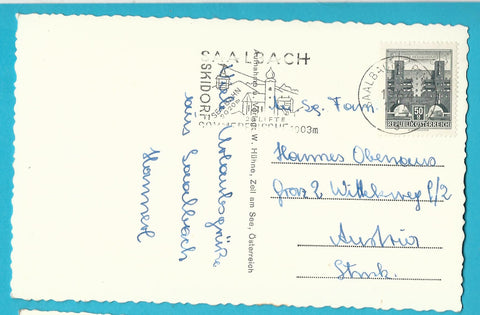 SAALBACH
SKIDORF
1003m
SAALBACH
50 g
REPUBLIK ÖSTERREICH
Aufnahme u. Verlag: W. Hühne, Zell am See, Österreich
Urlaubsgrüße
aus Saalbach
Hannerl
Fam.
Hannes Obenaus
Graz 2 Wittekweg 1/2
Austria
Stmk.